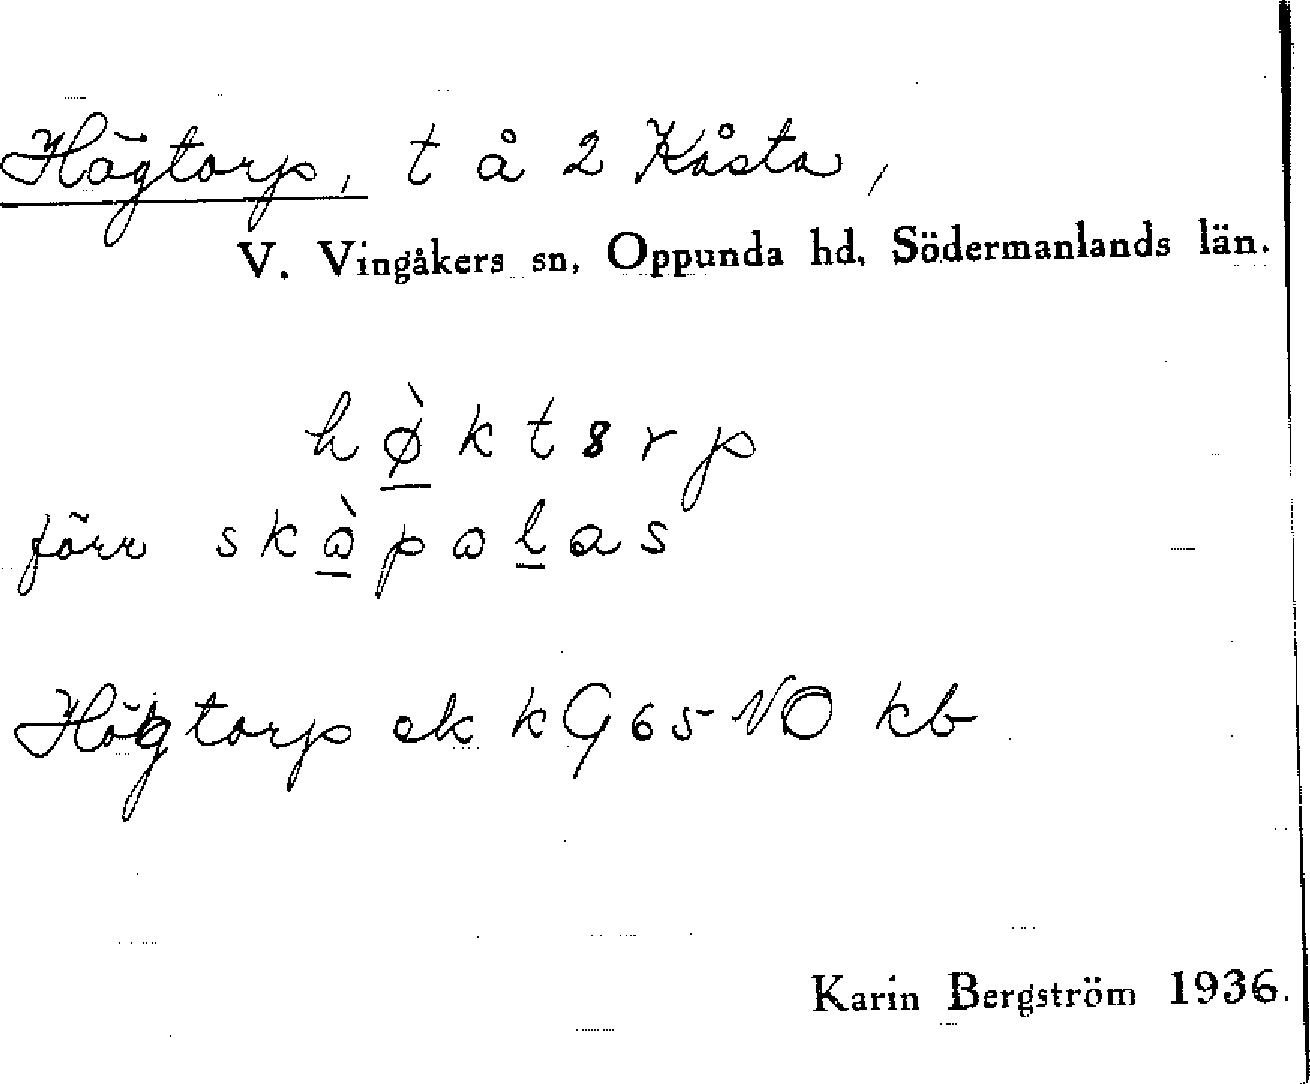 Högtorp, t å 2 Kåsta,
V. Vingåkers sn, Oppunda hd, Södermanlands län.
hø̀ktɞrp
förr skàpalas
Högtorp ek kG65 NO kb
Karin Bergström 1936.